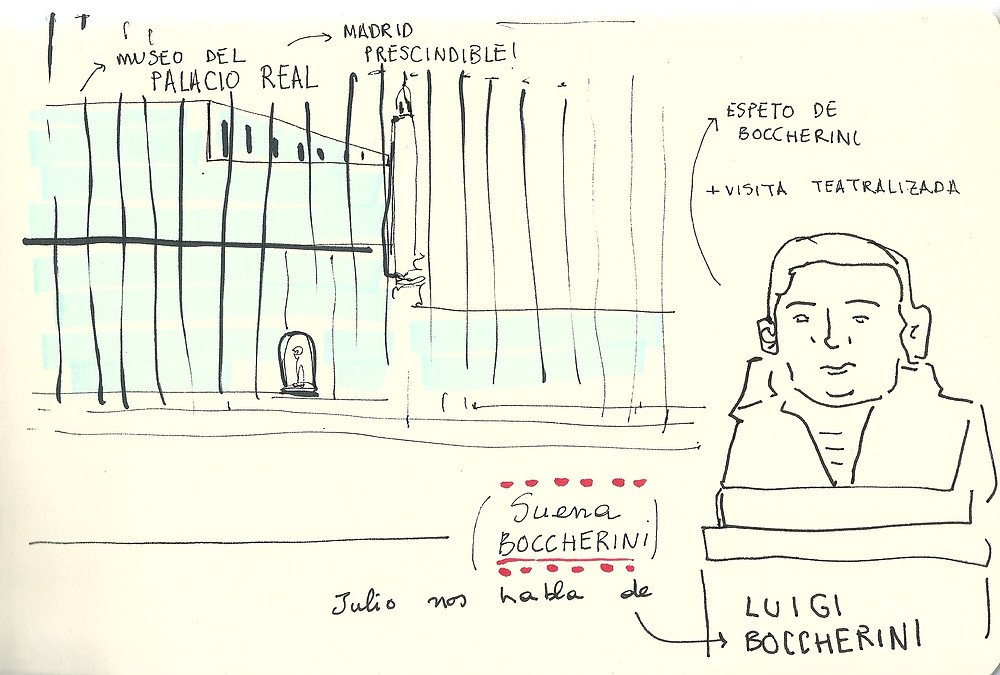 MUSEO DEL
PALACIO REAL
MADRID
PRESCINDIBLE!
ESPETO DE
BOCCHERINI
+ VISITA TEATRALIZADA
(Suena
BOCCHERINI)
Julio nos habla de
LUIGI
BOCCHERINI